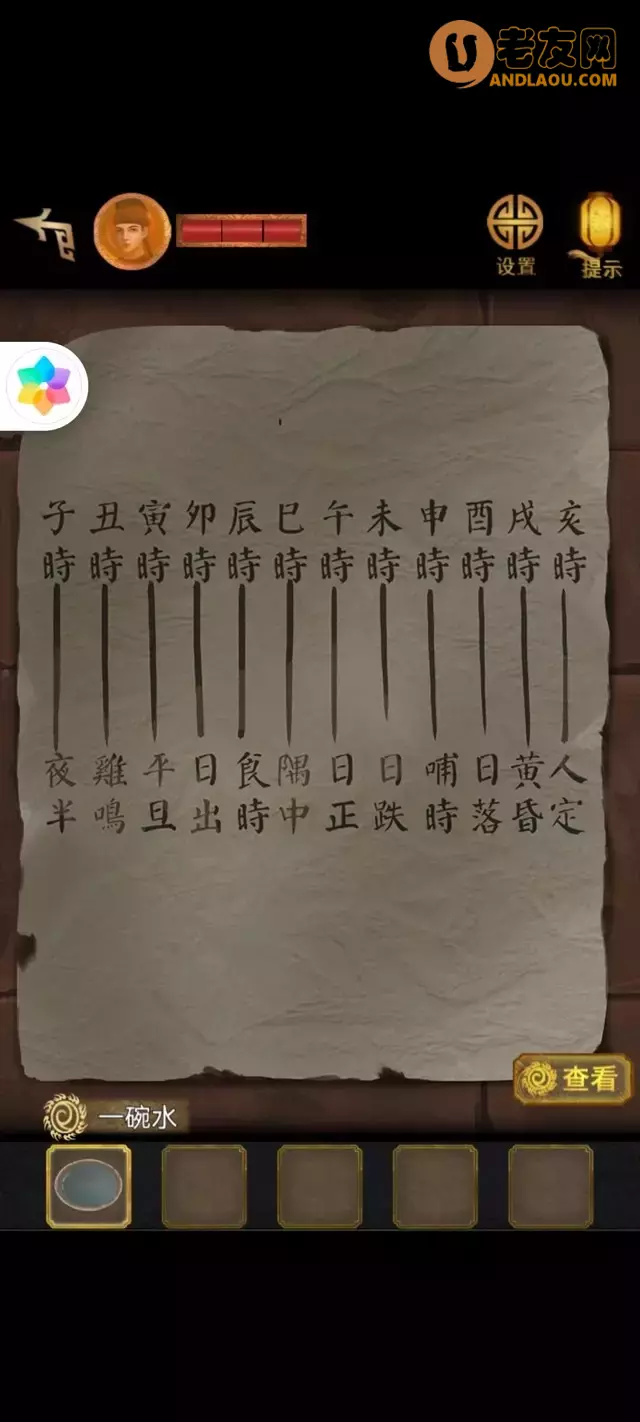 老友网
ANDLAOU.COM
设置
提示
子丑寅卯辰巳午未申酉戌亥
時時時時時時時時時時時時
夜雞平日食隅日日哺日黄人
半鳴旦出時中正跌時落昏定
查看
一碗水